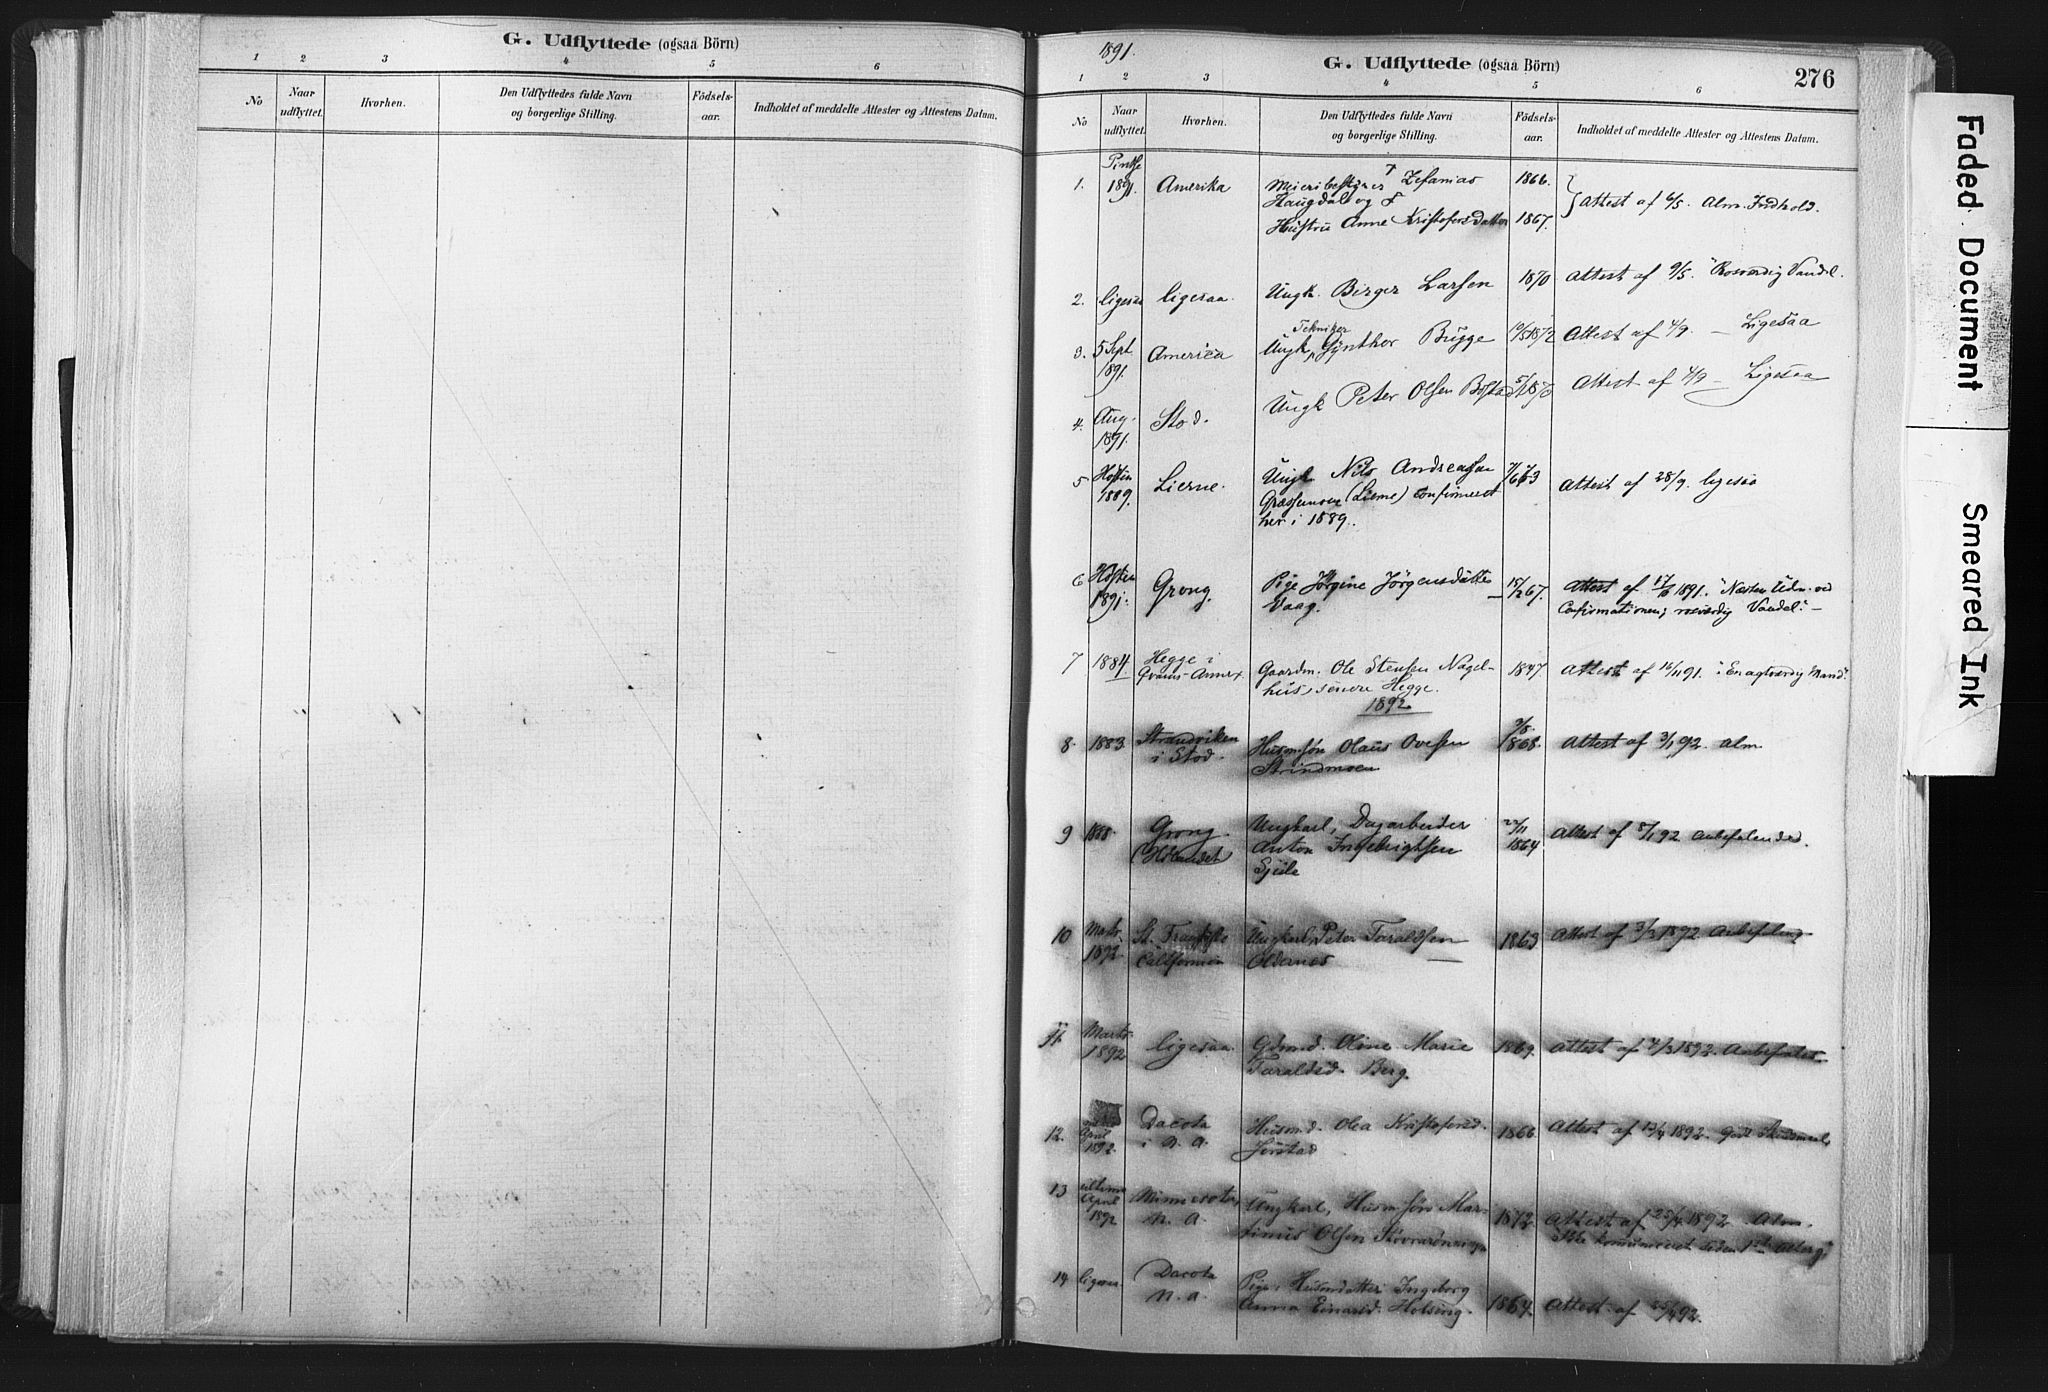 G. Udflyttede (ogsaa Börn)
1 2 3 4 5 6
No
Naar udflyttet.
Hvorhen.
Den Udflyttedes fulde Navn og borgerlige Stilling.
Födsels-aar.
Indholdet af meddelte Attester og Attestens Datum.
1891.
G. Udflyttede (ogsaa Börn)
276
1 2 3 4 5 6
No
Naar udflyttet.
Hvorhen.
Den Udflyttedes fulde Navn og borgerlige Stilling.
Födsels-aar.
Indholdet af meddelte Attester og Attestens Datum.
1. 1891. Amerika Meieribestyrer Zefanias 1866.
Haugdal og Attest af 6/5. Alm. Indhold.
Hustru Anne Kristofersdatter 1867.
2. ligesaa ligesaa. Ungk. Birger Larsen 1870 Attest af 9/5. "Rosværdig Vandel.
Tekniker
3. 5 Sept. 1891. America Ungk. Gynther Bugge 1872 Attest af 4/9. — Ligesaa
4. Aug. 1891. Stod. Ungk Peter Olsen Attest af 4/9 — Ligesaa
5 Høsten 1889. Lierne. Ungk. Nils Andreassen Attest af 28/9. ligesaa
(Lierne) confirmeret
her i 1889.
6 Høsten 1891. Grong. Pige Jørgine Jörgensdatter 15/2 67. Attest af 17/10 1891. "Næsten Udm. ved
Vaag. Confirmationen; rosværdig Vandel". —
7 1884. Hegge i Gaardm. Ole Stensen Nagel- 1847. Attest af 16/11 91. "En agtværdig Mand."
Kvams-Annex. hus, senere Hegge.
1892
8. 1883. Strandviken Husm.søn Olaus Ovesen 1868. Attest af 3/1 92. Alm.
i Stod. Strindmoen
9 1888. Grong. Ungkarl, Dagarbeider 22/11 1864 Attest af 5/1 92 Anbefalende.
Anton Ingebrigtsen
10 Marts 1892 St. Fransisko Ungkarl, Peter Taraldsen 1863 Attest af 3/3 1892 Anbefaling
Californien Oldernes
11. Marts 1892 ligesaa. Gdmd. Oline Marie 1869. Attest af 4/3 1892.
Taraldsd. Berg.
12. April 1892. Dacota Husmd. Olea Kristofersd. 1866 Attest af 13/4 1892. Godt
i N. A. Jørstad
13 ultimo April 1892 Minnesota, Ungkarl, Husm.søn Mar- 1872 Attest af 25/4 1892. Alm.
N. A. tinus Olsen Ikke
14 ligesaa Dacota Pige, Husmdatter Ingeborg 1864. Attest af 25/4 92.
N. A. Anna Einarsd.
Faded Document Smeared Ink